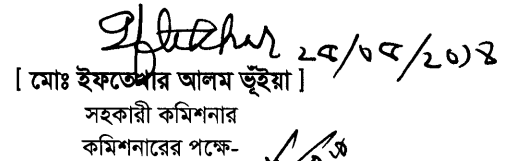 ২৫/০৫/২০১৪
[ মোঃ ইফতেখার আলম ভূঁইয়া ]
সহকারী কমিশনার
কমিশনারের পক্ষে-